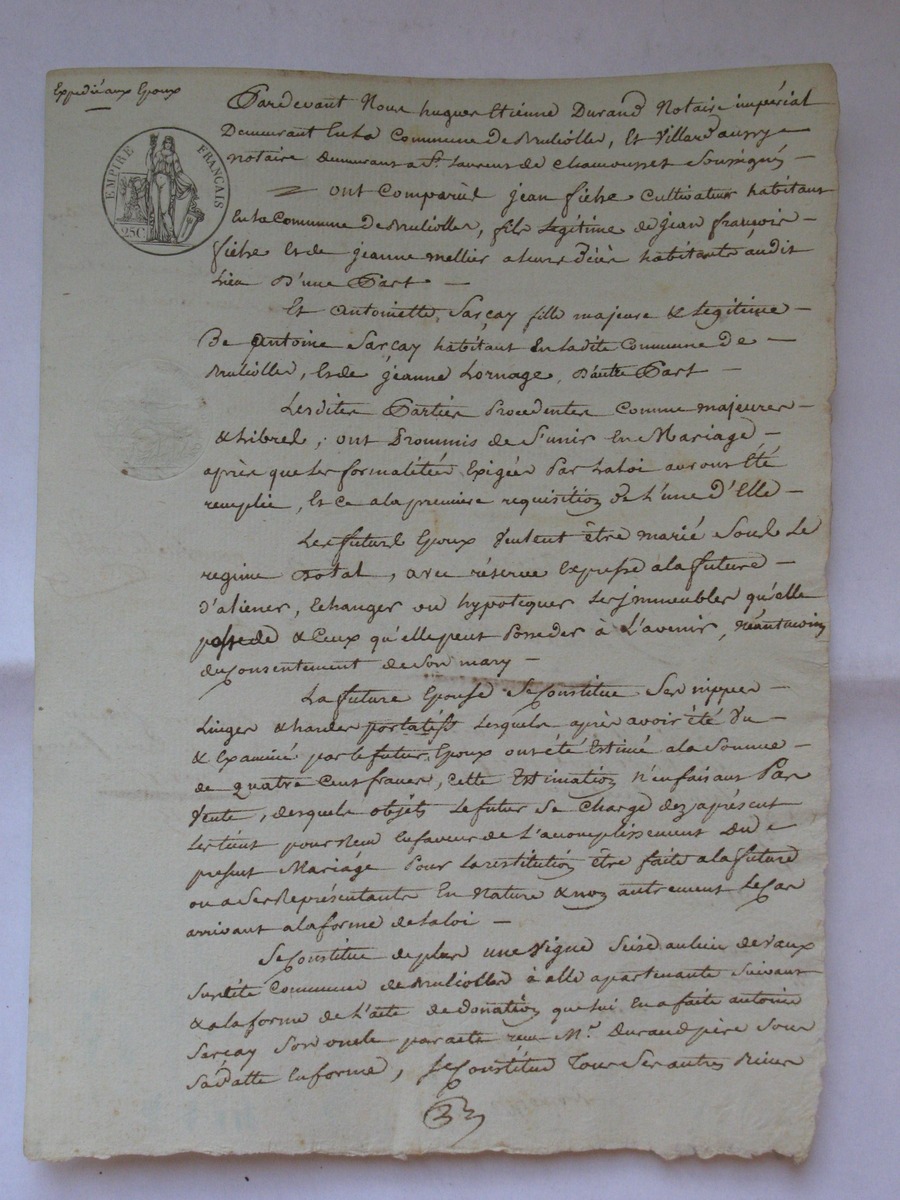 Expedié aux Epoux
EMPIRE FRANÇAIS
25C
Pardevant Nous hugues Etienne Durand Notaire impérial
Demeurant En la Commune de Brulioles, Et Villard aussy
notaire demeurant a St. Laurent de Chamousset Soussignés
ont Comparûs jean fiche Cultivateur habitant
En la Commune de Brulioles, fils Légitime de jean françois
fiche Et de jeanne mellier a leurs décès habitants audit
Lieu D'une Part
Et Antoinette Sarçay fille majeure & Legitime
De Antoine Sarçay habitant En ladite Commune De
Brulioles, Et de jeanne Lornage, D'autre Part
Lesdites Parties Procedentes Comme majeures
& Libres, ont Prommis de S'unir En Mariage
après que Les formalitées Exigées Par La loi auront Eté
remplie, Et Ce a la premiere requisition de L'une d'Elle
Les futurs Epoux Veulent être marié Sous Le
regime Dotal, avec réserve Expresse a la future
D'aliener, Echanger ou hypotequer Les jmmeubles qu'elle
possede & Ceux qu'elle peut Posseder à L'avenir, néantmoins
du Consentement de Son mary
La future Epouse Se Constitue Ses nippes
Linges & hardes portatifs Lesquels après avoir été Vu
& Examiné par le futur Epoux ont été Estimé a la Somme
de quatre Cent francs, Cette Estimation N'en faisant Pas
Vente, desquels objets Le futur Se Charge dez aprésent
Les tient pour Reçu En faveur de L'accomplissement Du
present Mariage Pour La restitution être faite a la future
ou a Ses Représentants En Nature & non autrement Le Cas
arrivant a la forme de La loi
Se Constitue de plus une Vigne Scise au lieu de Vaux
Susdite Commune de Brulioles à Elle apartenante Suivant
& a la forme de L'acte de Donation que lui En a faite antoine
Sarçay Son oncle par acte reçu Me. Durand père Sous
Sa Datte En forme, Se Constitue Tous Ses autres Biens